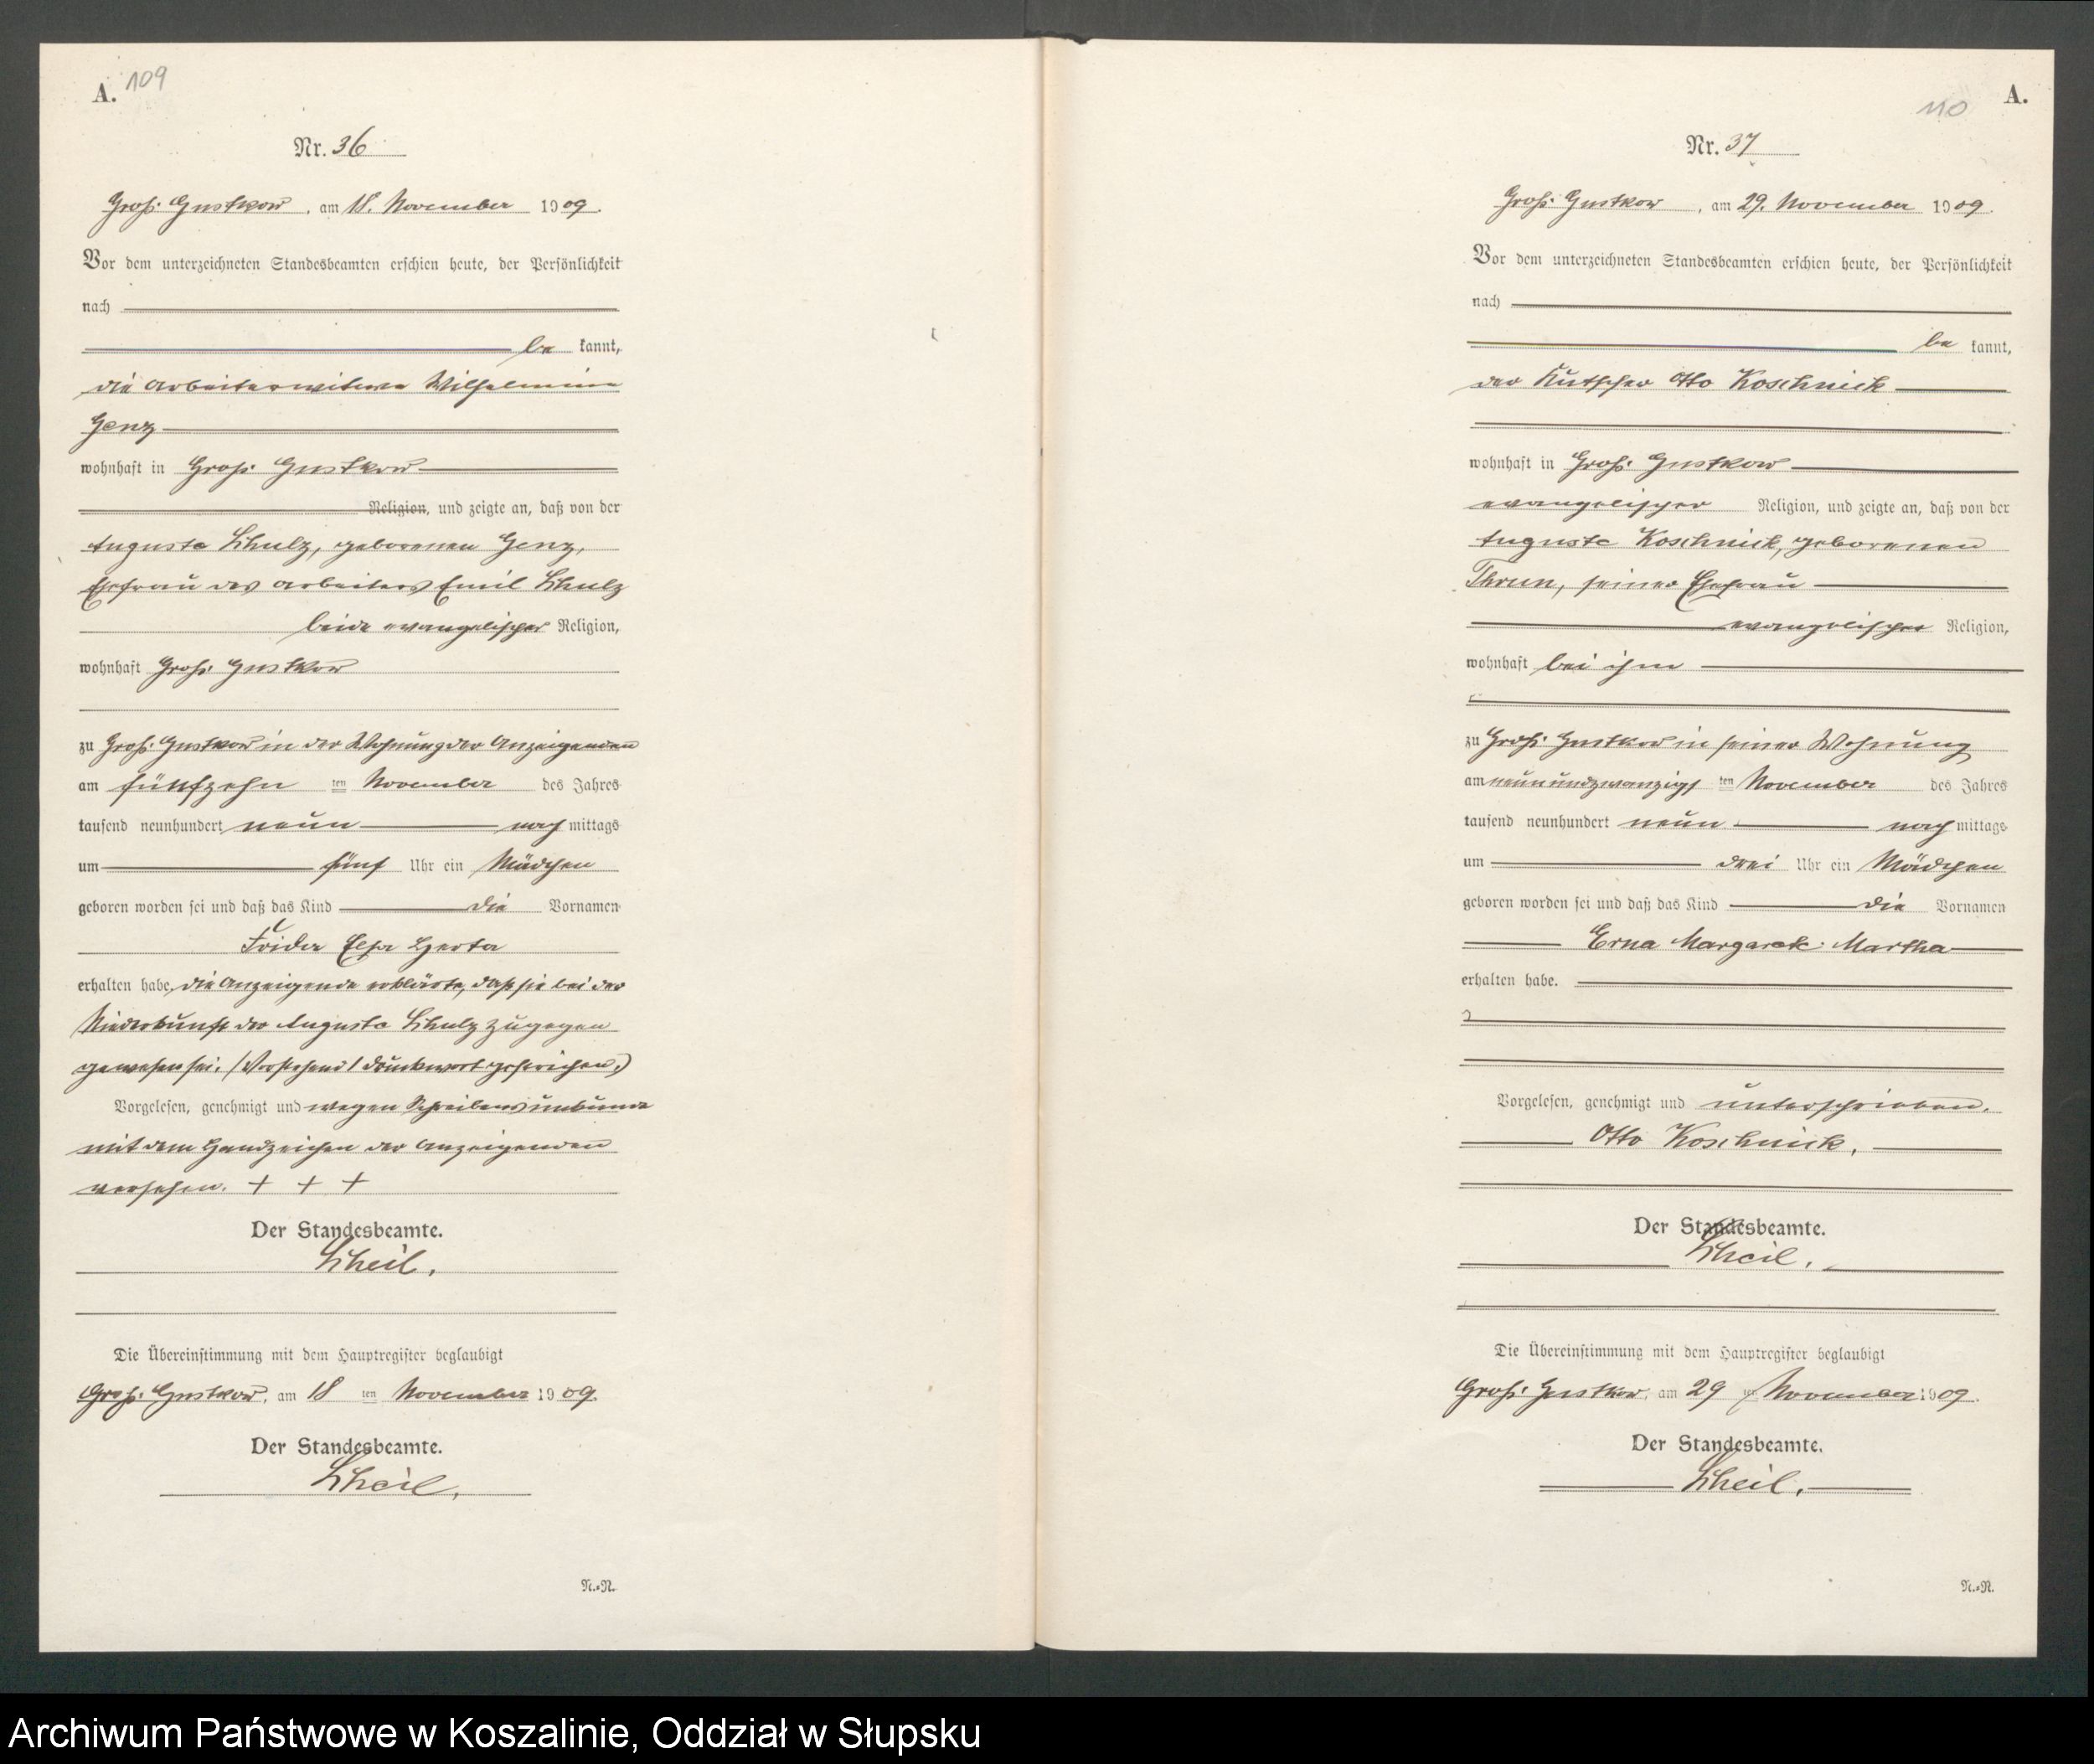 A. 109
Nr. 36
Groß Gustkow, am 18. November 1909.
Vor dem unterzeichneten Standesbeamten erschien heute, der Persönlichkeit
nach
be kannt,
die Arbeiterwitwe Wilhelmine
Genz
wohnhaft in Groß Gustkow
Religion, und zeigte an, daß von der
Auguste Schulz, geborenen Genz,
Ehefrau des Arbeiters Emil Schulz
beide evangelischer Religion,
wohnhaft Groß Gustkow
zu Groß Gustkow in der Wohnung der Anzeigenden
am fünfzehn ten November des Jahres
tausend neunhundert neun nach mittags
um fünf Uhr ein Mädchen
geboren worden sei und daß das Kind die Vornamen
Frida Elsa Herta
erhalten habe, die Anzeigende erklärte, daß sie bei der
Niederkunft der Auguste Schulz zugegen
gewesen sei. (Vorstehend 1 Druckwort gestrichen.)
Vorgelesen, genehmigt und wegen Schreibensunkunde
mit dem Handzeichen der Anzeigenden
versehen. + + +
Der Standesbeamte.
Scheil.
Die Übereinstimmung mit dem Hauptregister beglaubigt
Groß Gustkow, am 18 ten November 1909.
Der Standesbeamte.
Scheil.
N.=N.
110 A.
Nr. 37
Groß Gustkow, am 29. November 1909.
Vor dem unterzeichneten Standesbeamten erschien heute, der Persönlichkeit
nach
be kannt,
der Kutscher Otto Koschnick
wohnhaft in Groß Gustkow
evangelischer Religion, und zeigte an, daß von der
Auguste Koschnick, geborenen
Thrun, seiner Ehefrau
evangelischer Religion,
wohnhaft bei ihm
zu Groß Gustkow in seiner Wohnung
am neunundzwanzigs ten November des Jahres
tausend neunhundert neun nach mittags
um drei Uhr ein Mädchen
geboren worden sei und daß das Kind die Vornamen
Erna Margarete Martha
erhalten habe.
Vorgelesen, genehmigt und unterschrieben.
Otto Koschnick.
Der Standesbeamte.
Scheil.
Die Übereinstimmung mit dem Hauptregister beglaubigt
Groß Gustkow, am 29 ten November 1909.
Der Standesbeamte.
Scheil.
N.=N.
Archiwum Państwowe w Koszalinie, Oddział w Słupsku